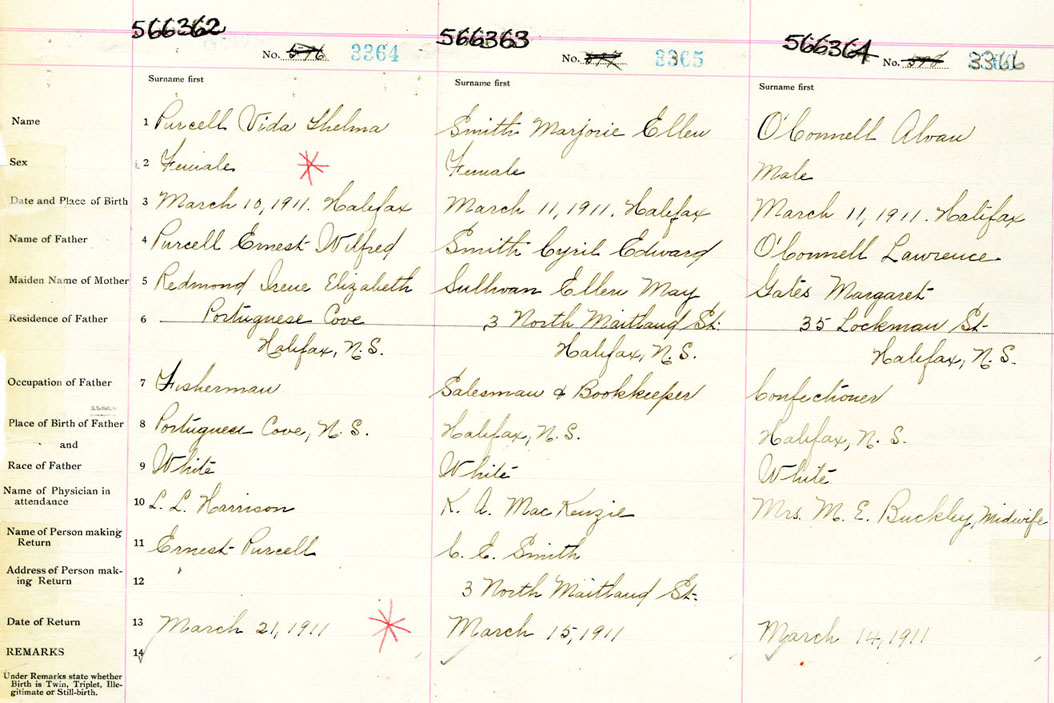 566362 566363 566364
No. 576 3364 No. 577 3365 No. 578 3366
Surname first Surname first Surname first
Name 1 Purcell Vida Thelma Smith Marjorie Ellen O'Connell Alvan
Sex 2 Female Female Male
Date and Place of Birth 3 March 10, 1911. Halifax March 11, 1911. Halifax March 11, 1911. Halifax
Name of Father 4 Purcell Ernest Wilfred Smith Cyril Edward O'Connell Lawrence
Maiden Name of Mother 5 Redmond Irene Elizabeth Sullivan Ellen May Gates Margaret
Residence of Father 6 Portuguese Cove 3 North Maitland St. 35 Lockman St.
Halifax, N.S. Halifax, N.S. Halifax, N.S.
Occupation of Father 7 Fisherman Salesman & Bookkeeper Confectioner
Place of Birth of Father 8 Portuguese Cove, N.S. Halifax, N.S. Halifax, N.S.
and
Race of Father 9 White White White
Name of Physician in
attendance 10 L. L. Harrison K. A. MacKenzie Mrs. M. E. Buckley, Midwife
Name of Person making
Return 11 Ernest Purcell C. E. Smith
Address of Person mak-
ing Return 12 3 North Maitland St.
Date of Return 13 March 21, 1911 March 15, 1911 March 14, 1911
REMARKS 14
Under Remarks state whether
Birth is Twin, Triplet, Ille-
gitimate or Still-birth.